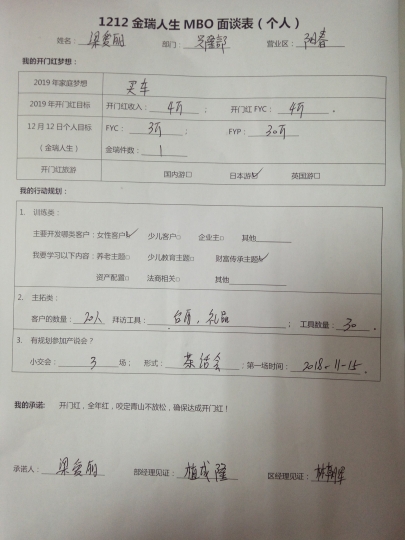 1212 金瑞人生 MBO 面谈表（个人）
姓名： 梁爱丽 部门： 吴隆部 营业区： 阳春
我的开门红梦想：
2019 年家庭梦想 买车
2019 年开门红目标 开门红收入： 4万 开门红 FYC： 4万.
12 月 12 日个人目标（金瑞人生） FYC： 3万 ； FYP： 30万
金瑞件数： 1
开门红旅游 国内游□ 日本游☑ 英国游□
我的行动规划：
1. 训练类：
主要开发哪类客户：女性客户☑ 少儿客户□ 企业主□ 其他
我要学习以下内容：养老主题□ 少儿教育主题□ 财富传承主题☑
资产配置□ 法商相关□ 其他
2. 主拓类：
客户的数量： 20人 拜访工具： 台历，礼品 ；工具数量： 30 .
3. 有规划参加产说会？
小交会： 3 场； 形式： 茶话会 ；第一场时间： 2018-11-15.
我的承诺： 开门红，全年红，咬定青山不放松，确保达成开门红！
承诺人： 梁爱丽 部经理见证： 植成隆 区经理见证：